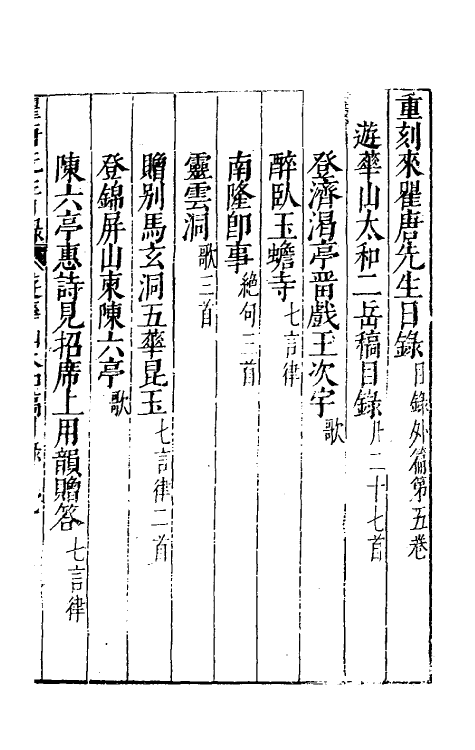 重刻來瞿唐先生日錄 目錄外篇第五卷
遊華山太和二岳稿目錄 廾二十七首
登濟渴亭畨戲王次宇 歌
醉臥玉蟾寺 七言律
南隆卽事 絶句三首
靈雲洞 歌三首
贈别馬玄洞五華昆玉 七言律二首
登錦屏山柬陳六亭 歌
陳六亭惠詩見招席上用韻贈答 七言律